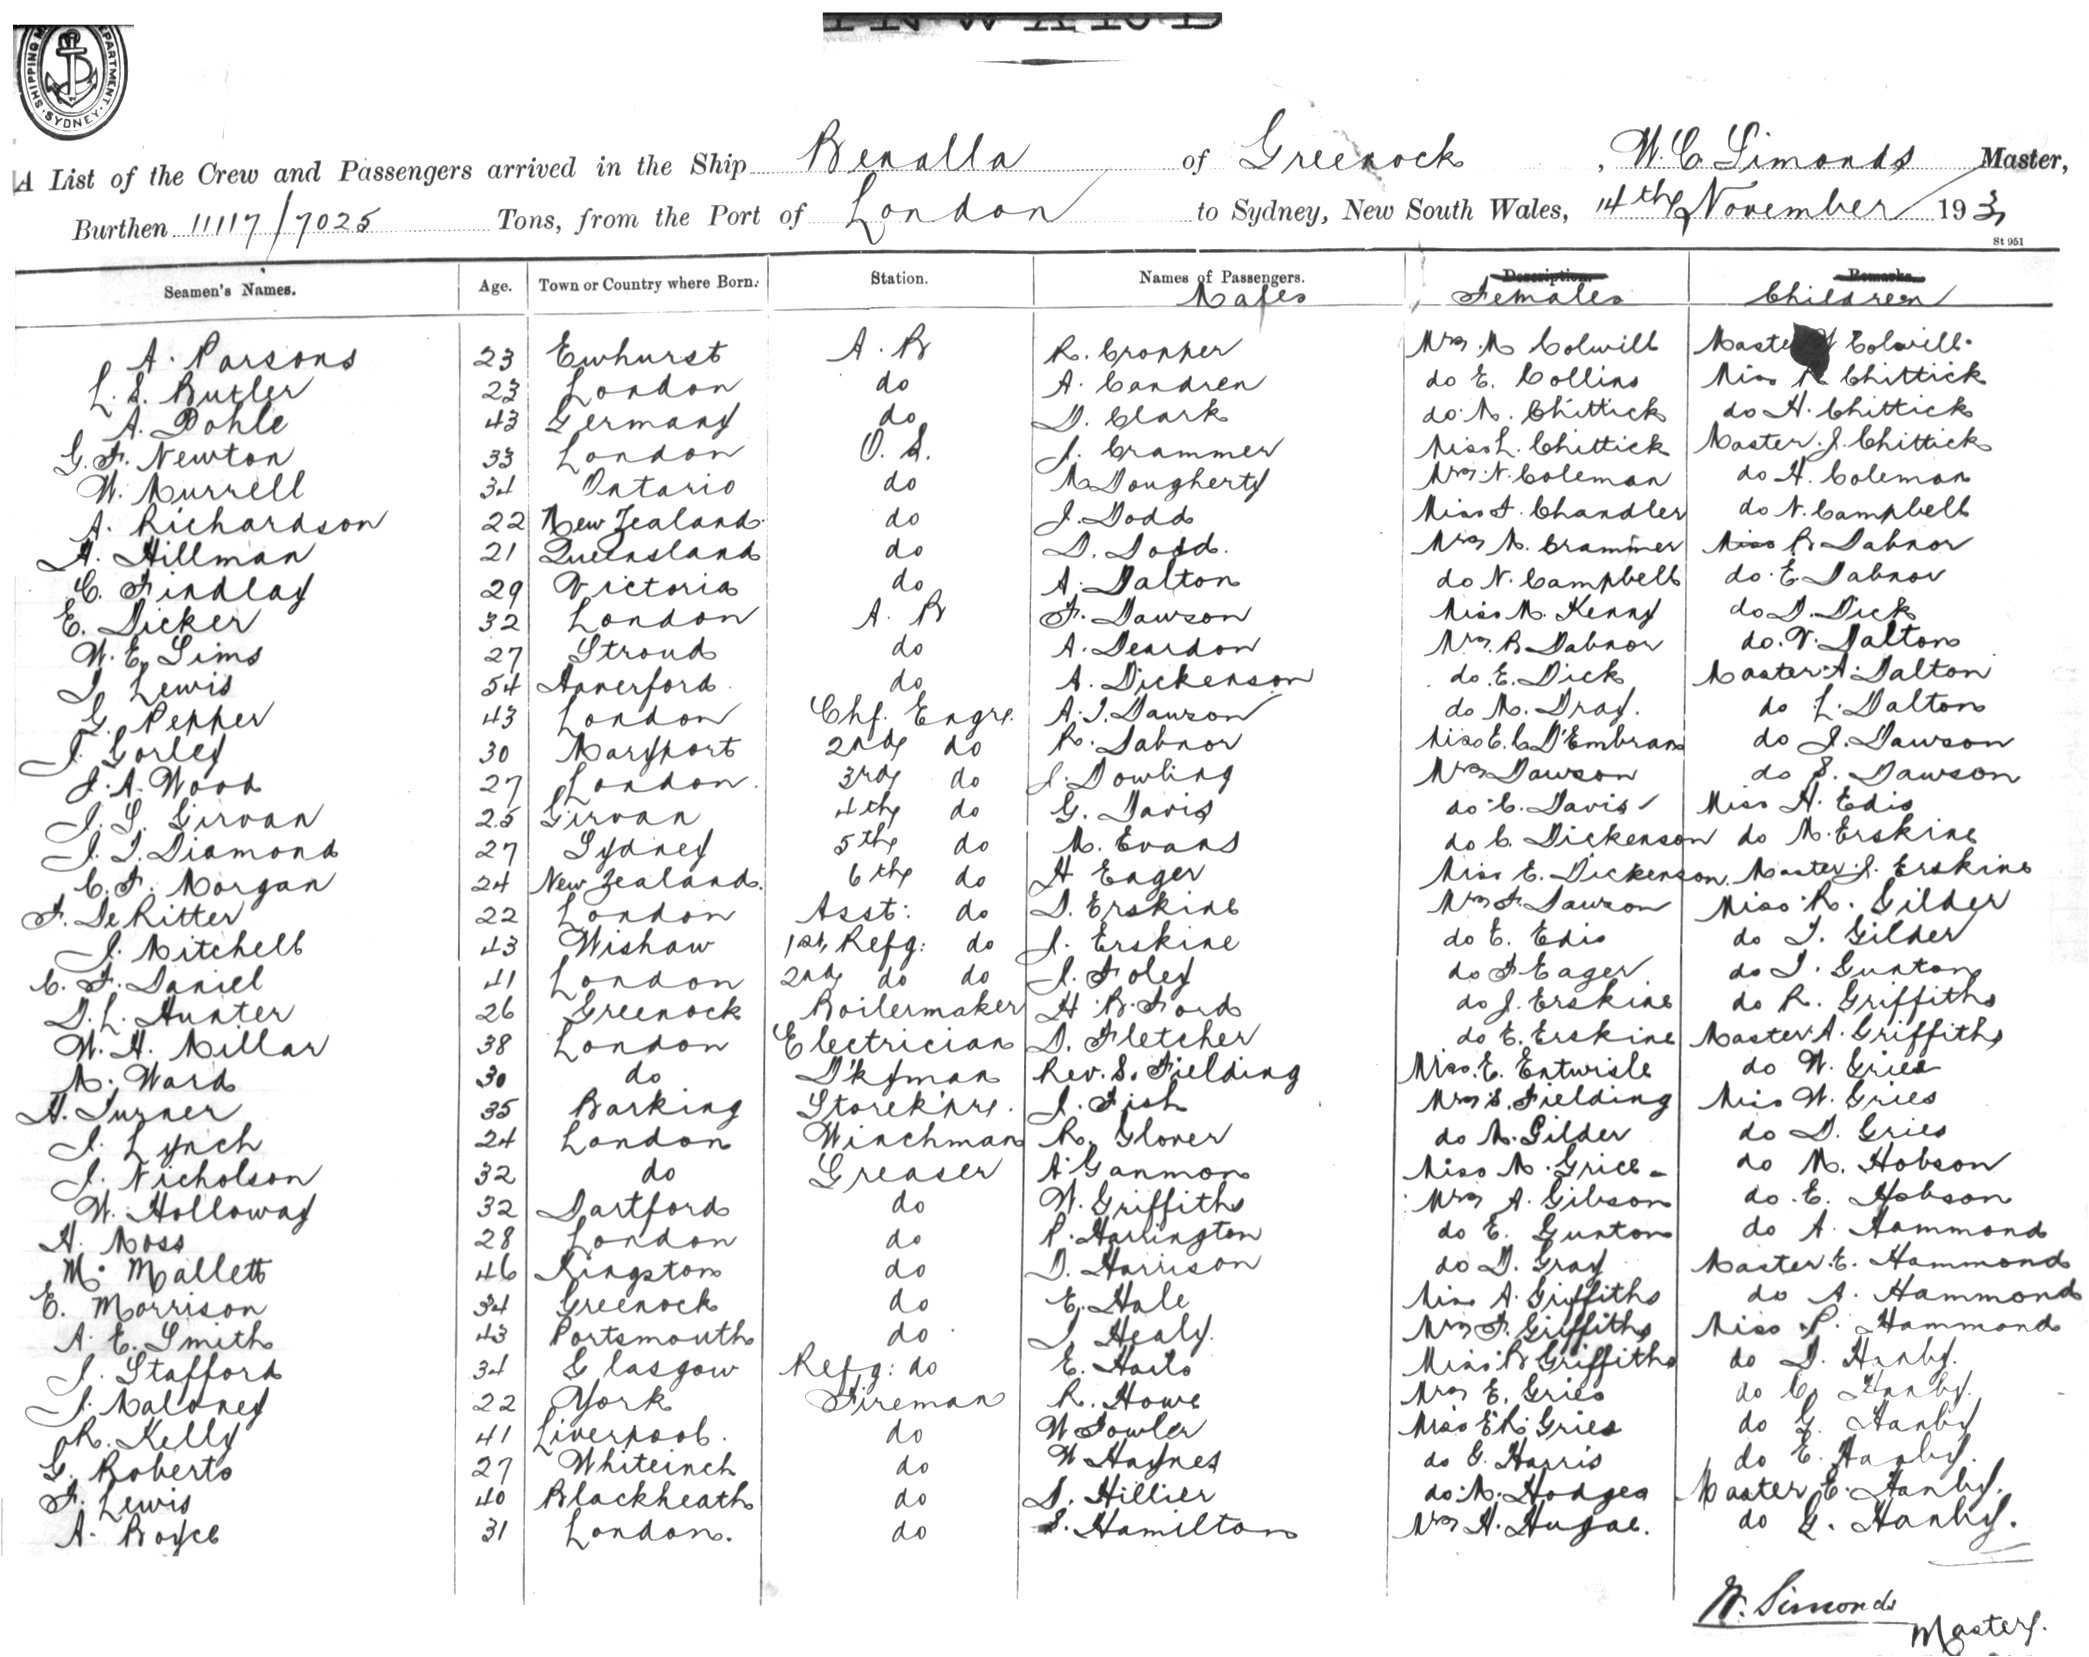 SHIPPING DEPARTMENT SYDNEY
INWARD
A List of the Crew and Passengers arrived in the Ship Benalla of Greenock, W. C. Simonds Master,
Burthen 11117/7025 Tons, from the Port of London to Sydney, New South Wales, 14th November 19
St 951
Seamen's Names. Age. Town or Country where Born. Station. Names of Passengers. Description. Remarks.
Males Females Children
A. Parsons 23 Ewhurst A. B R. Cropper Mrs. M Colwill Master Colwill.
L. S. Butler 23 London do A. Candren do E. Collins Miss Chittick
A. Dohle 43 Germany do D. Clark do. M. Chittick do H. Chittick
G. F. Newton 33 London O. S. J. Crammer Miss L. Chittick Master J. Chittick
W. Murrell 34 Ontario do M Dougherty Mrs. N. Coleman do H. Coleman
A. Richardson 22 New Zealand do J. Dodd Miss F. Chandler do N. Campbell
H. Hillman 21 Queensland do D. Dodd. Mrs M. Crammer Miss B Dabnor
C. Findlay 29 Victoria do A. Dalton do N. Campbell do. E Dabnor
E. Dicker 32 London A. B F. Dawson Miss M. Kenny do D. Dick
W. E. Sims 27 Stroud do A. Deardon Mrs. B Dabnor do. V. Dalton
J Lewis 54 do A. Dickenson do. E. Dick Master A. Dalton
G. Pepper 43 London Chf. Engr. A. J. Dawson do M. Dray. do L. Dalton
J. Gorley 30 Maryport 2nd do R. Dabnor Miss E. C D'Embrans do J. Dawson
J. A. Wood 27 London. 3rd do J. Dowling Mrs Dawson do S. Dawson
J. S. Girvan 25 Girvan 4th do G. Davis do C. Davis Miss H. Edis
J. J. Diamond 27 Sydney 5th do M. Evans do C. Dickenson do M. Erskine
C. F. Morgan 24 New Zealand. 6th do H Eager Miss E. Dickenson. Master J. Erskine
F. De Ritter 22 London Asst: do D. Erskine Mrs F. Dawson Miss R. Gilder
J. Mitchell 43 Wishaw 1st Refg: do J. Erskine do E. Edis do J. Gilder
C. F. Daniel 41 London 2nd do do J. Foley do F Eager do J. Gunton
D. L. Hunter 26 Greenock Boilermaker H. B. Ford do J. Erskine do R. Griffiths
W. H. Millar 38 London Electrician D. Fletcher do E. Erskine Master A. Griffiths
M. Ward 30 do D'kyman Rev. S. Fielding Miss. E. Entwisle do W. Gries
H. Turner 35 Barking Storek'pr. J. Fish Mrs S. Fielding Miss W. Gries
J. Lynch 24 London Winchman R. Glover do M. Gilder do D. Gries
J. Nicholson 32 do Greaser A Ganmon Miss M. Grice do M. Hobson
W. Holloway 32 Dartford do W. Griffiths Mrs A. Gibson do. E. Hobson
H. Moss 28 London do P. Harrington do E. Gunton do A. Hammond
M. Mallett 46 Kingston do D. Harrison do D. Gray Master. E. Hammond
E. Morrison 34 Greenock do E. Hale Miss A. Griffiths do A. Hammond
A. E. Smith 43 Portsmouth do J Healy. Mrs F. Griffiths Miss P. Hammond
J. Stafford 34 Glasgow Refg: do E. Miss B Griffiths do D. Hanby.
J. Maloney 22 York Fireman R. Howe Mrs E. Gries do C. Hanby.
R. Kelly 41 Liverpool. do W Fowler Miss E R. Gries do G. Hanby
G. Roberts 27 Whiteinch do W Haynes do G. Harris do E. Hanby.
F. Lewis 40 Blackheath do D. Hillier do. M. Hodges Master E. Hanby.
A. Boyce 31 London. do S. Hamilton Mrs H. do G. Hanby.
W. Simonds
Master.